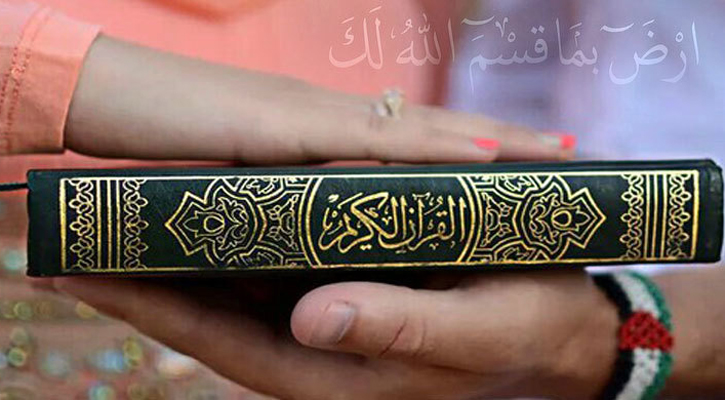 ارْضَ بِمَا قَسَمَ اللّٰهُ لَكَ
القرآن الكريم